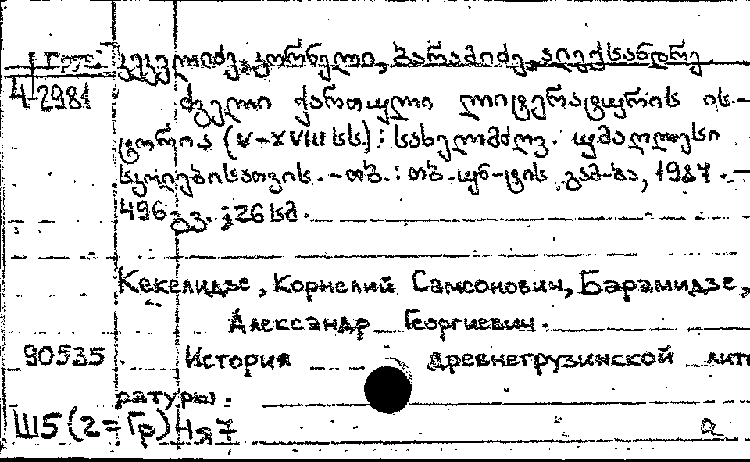 Груз. კეკელიძე, კორნელი, ბარამიძე, ალექსანდრე
4-2981 ძველი ქართული ლიტერატურის ის-
ტორია (V-XVIII სს): სახელმძღვ. უმაღლესი
სკოლებისათვის. - თბ.: თბ. უნ-ტის გამ-ბა, 1987. -
496 გვ. ; 26 სმ.
Кекелидзе, Корнелий Самсонович, Барамидзе,
Александр Георгиевич.
90535 История древнегрузинской лите
ратуры.
Ш5(2=Гр) Я7